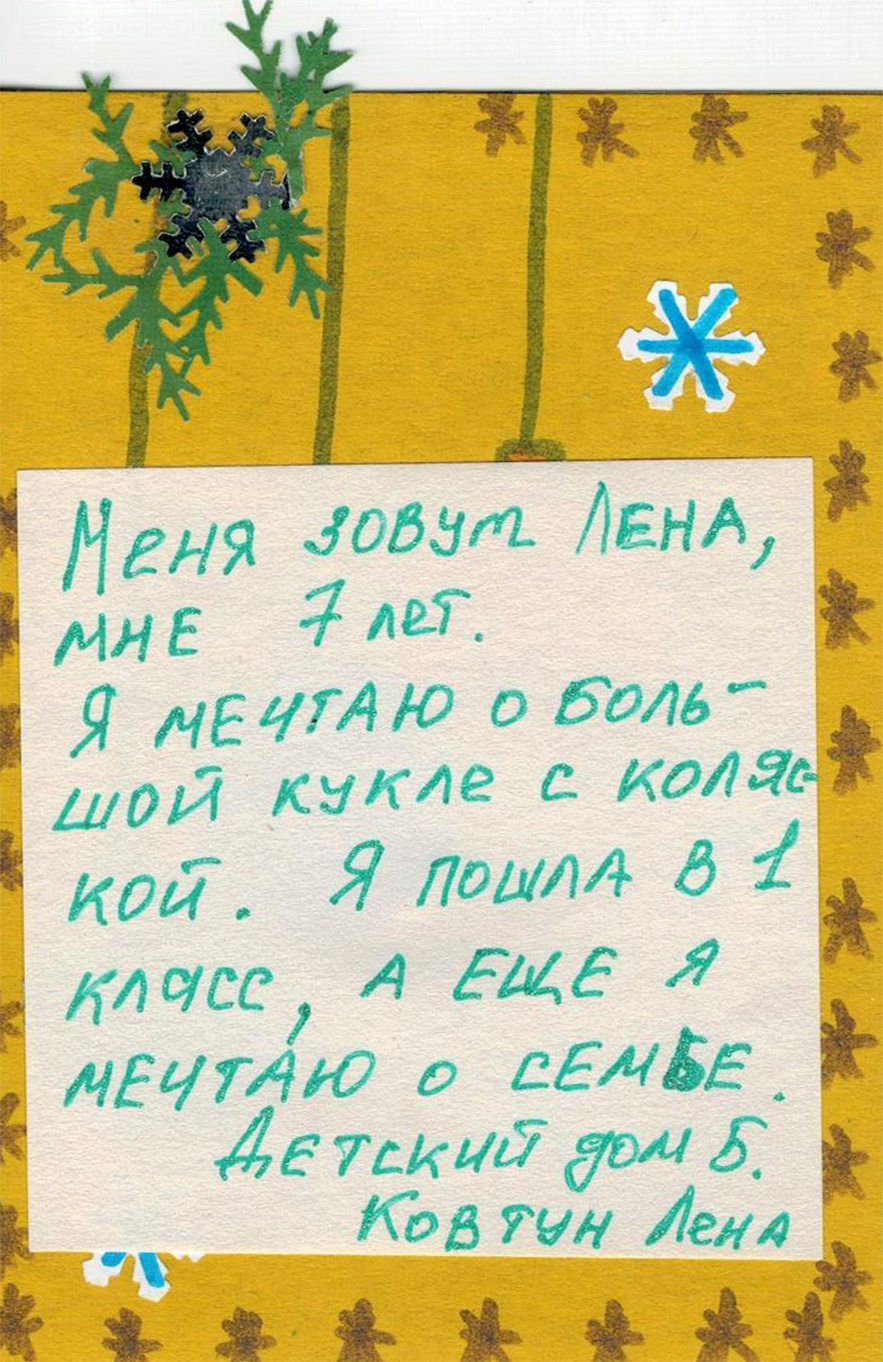 Меня зовут Лена,
мне 7 лет.
Я мечтаю о боль-
шой кукле с коляс-
кой. Я пошла в 1
класс, а еще я
мечтаю о семье.
Детский дом Б.
Ковтун Лена